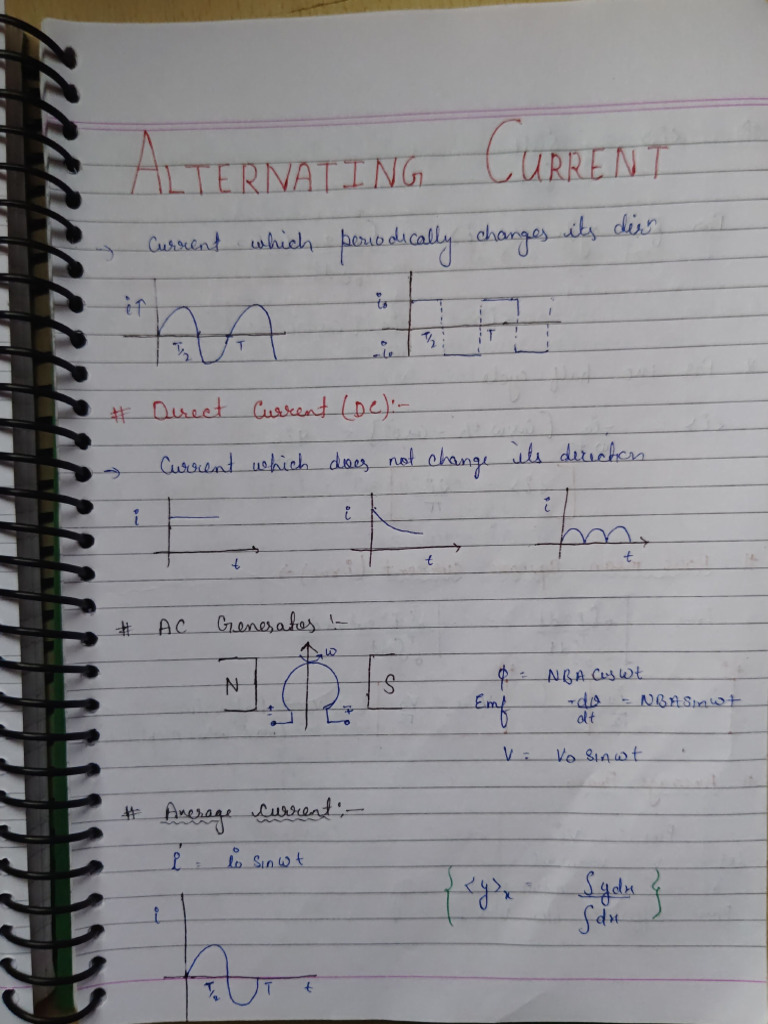 ALTERNATING CURRENT
→ Current which periodically changes its dirⁿ
i↑ T/2 T
i₀ -i₀ T/2 T
# Direct Current (DC):-
→ Current which does not change its direction
i t
i t
i t
# AC Generator :-
N ω S
ϕ = NBA cos ωt
Emf -dϕ/dt = NBA sin ωt
V = V₀ sin ωt
# Average Current :-
i = i₀ sin ωt
{ <y>ₓ = ∫ydx / ∫dx }
i T/2 T t